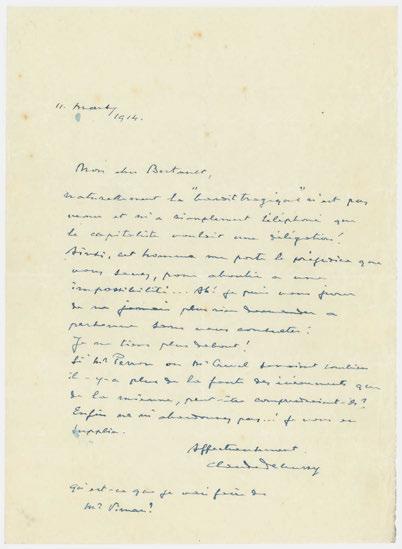 11. Mars/
1914.
Mon cher Bertault,
naturellement le "bandit tragique" n'est pas
venu et m'a simplement téléphoné que
le capitaliste voulait une délégation!
Ainsi, cet homme me porte le préjudice que
vous savez, pour aboutir à une
impossibilité... Ah! je puis vous jurer
de ne jamais plus rien demander à
personne sans vous consulter!
Je ne tiens plus debout!
Si Mr ou Mr savaient combien
il-y-a plus de la faute des évènements que
de la mienne, peut-être comprendraient-ils?
Enfin ne m'abandonnez pas...! je vous en
supplie.
Affectueusement
Claude Debussy
Qu'est-ce que je vais faire de
Mr ?